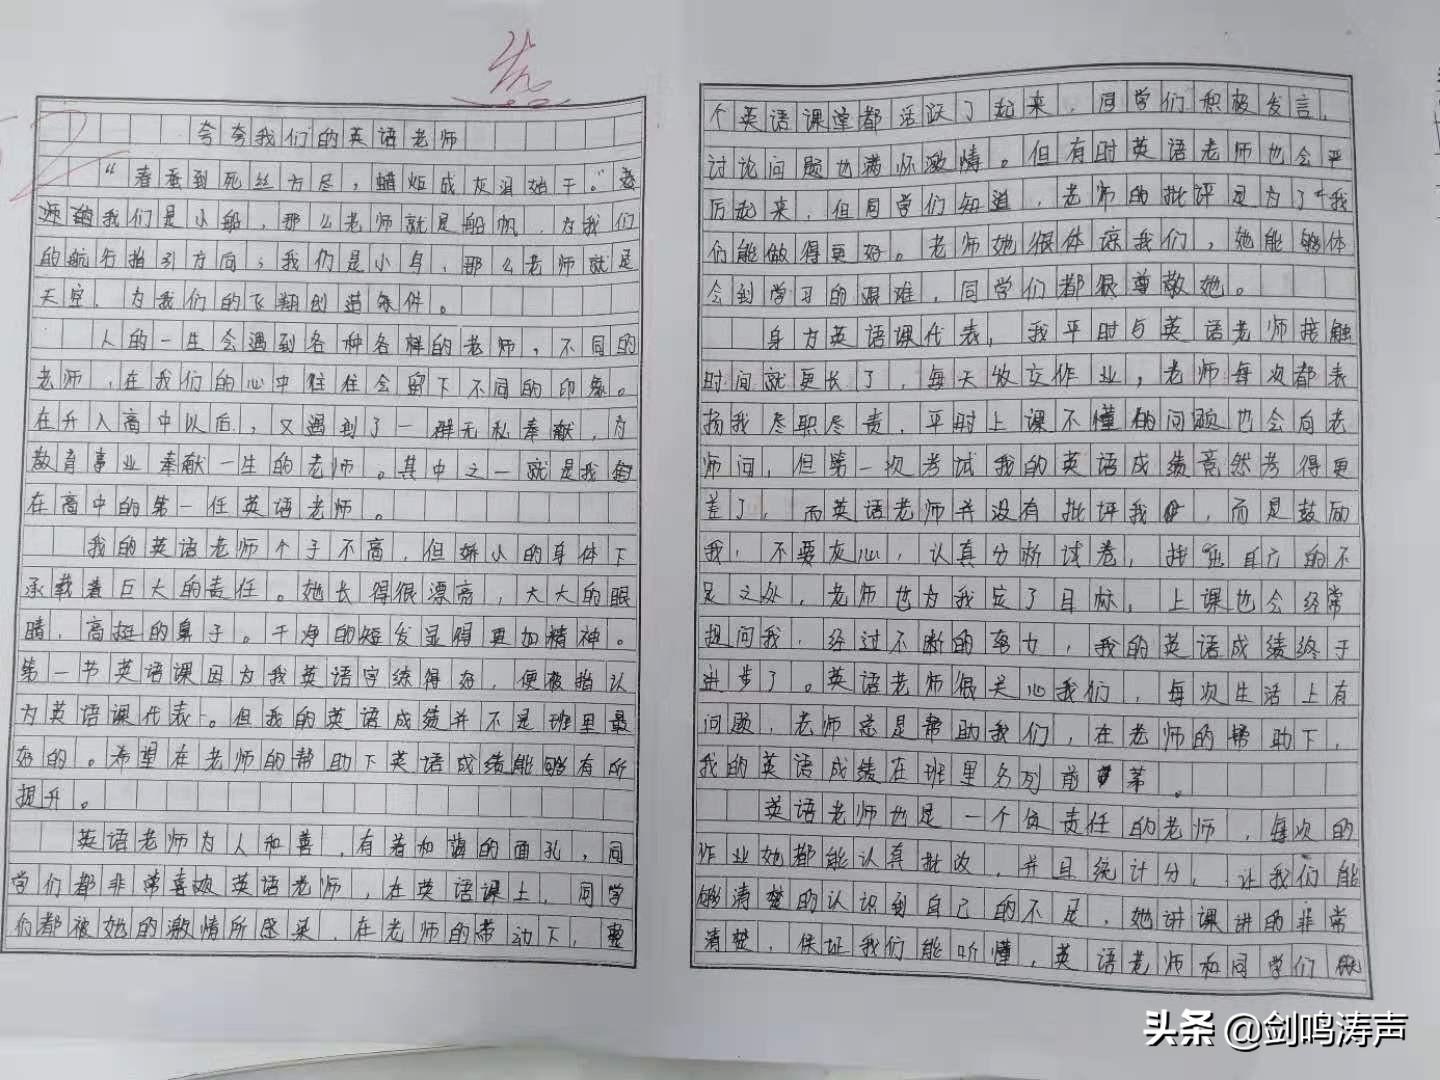 夸夸我们的英语老师
“春蚕到死丝方尽，蜡炬成灰泪始干。”
我们是小船，那么老师就是船帆，为我们
的航行指引方向；我们是小鸟，那么老师就是
天空，为我们的飞翔创造条件。
人的一生会遇到各种各样的老师，不同的
老师，在我们的心中往往会留下不同的印象。
在升入高中以后，又遇到了一群无私奉献，为
教育事业奉献一生的老师。其中之一就是我
在高中的第一任英语老师。
我的英语老师个子不高，但娇小的身体下
承载着巨大的责任。她长得很漂亮，大大的眼
睛，高挺的鼻子。干净的短发显得更加精神。
第一节英语课因为我英语字练得好，便被指认
为英语课代表。但我的英语成绩并不是班里最
好的。希望在老师的帮助下英语成绩能够有所
提升。
英语老师为人和善，有着和蔼的面孔，同
学们都非常喜欢英语老师，在英语课上，同学
们都被她的激情所感染，在老师的带动下，整
个英语课堂都活跃了起来，同学们积极发言，
讨论问题也满怀激情。但有时英语老师也会严
厉起来，但同学们知道，老师的批评是为了我
们能做得更好。老师她很体谅我们，她能够体
会到学习的艰难，同学们都很尊敬她。
身为英语课代表，我平时与英语老师接触
时间就更长了，每天收交作业，老师每次都表
扬我尽职尽责，平时上课不懂的问题也会向老
师问，但第一次考试我的英语成绩竟然考得更
差了，而英语老师并没有批评我，而是鼓励
我，不要灰心，认真分析试卷，找出自己的不
足之处，老师也为我定了目标，上课也会经常
提问我，经过不断的努力，我的英语成绩终于
进步了。英语老师很关心我们，每次生活上有
问题，老师总是帮助我们，在老师的帮助下，
我的英语成绩在班里名列前茅。
英语老师也是一个负责任的老师，每次的
作业她都能认真批改，并且统计分，让我们能
够清楚的认识到自己的不足，她讲课讲的非常
清楚，保证我们能听懂，英语老师和同学们
头条 @剑鸣涛声